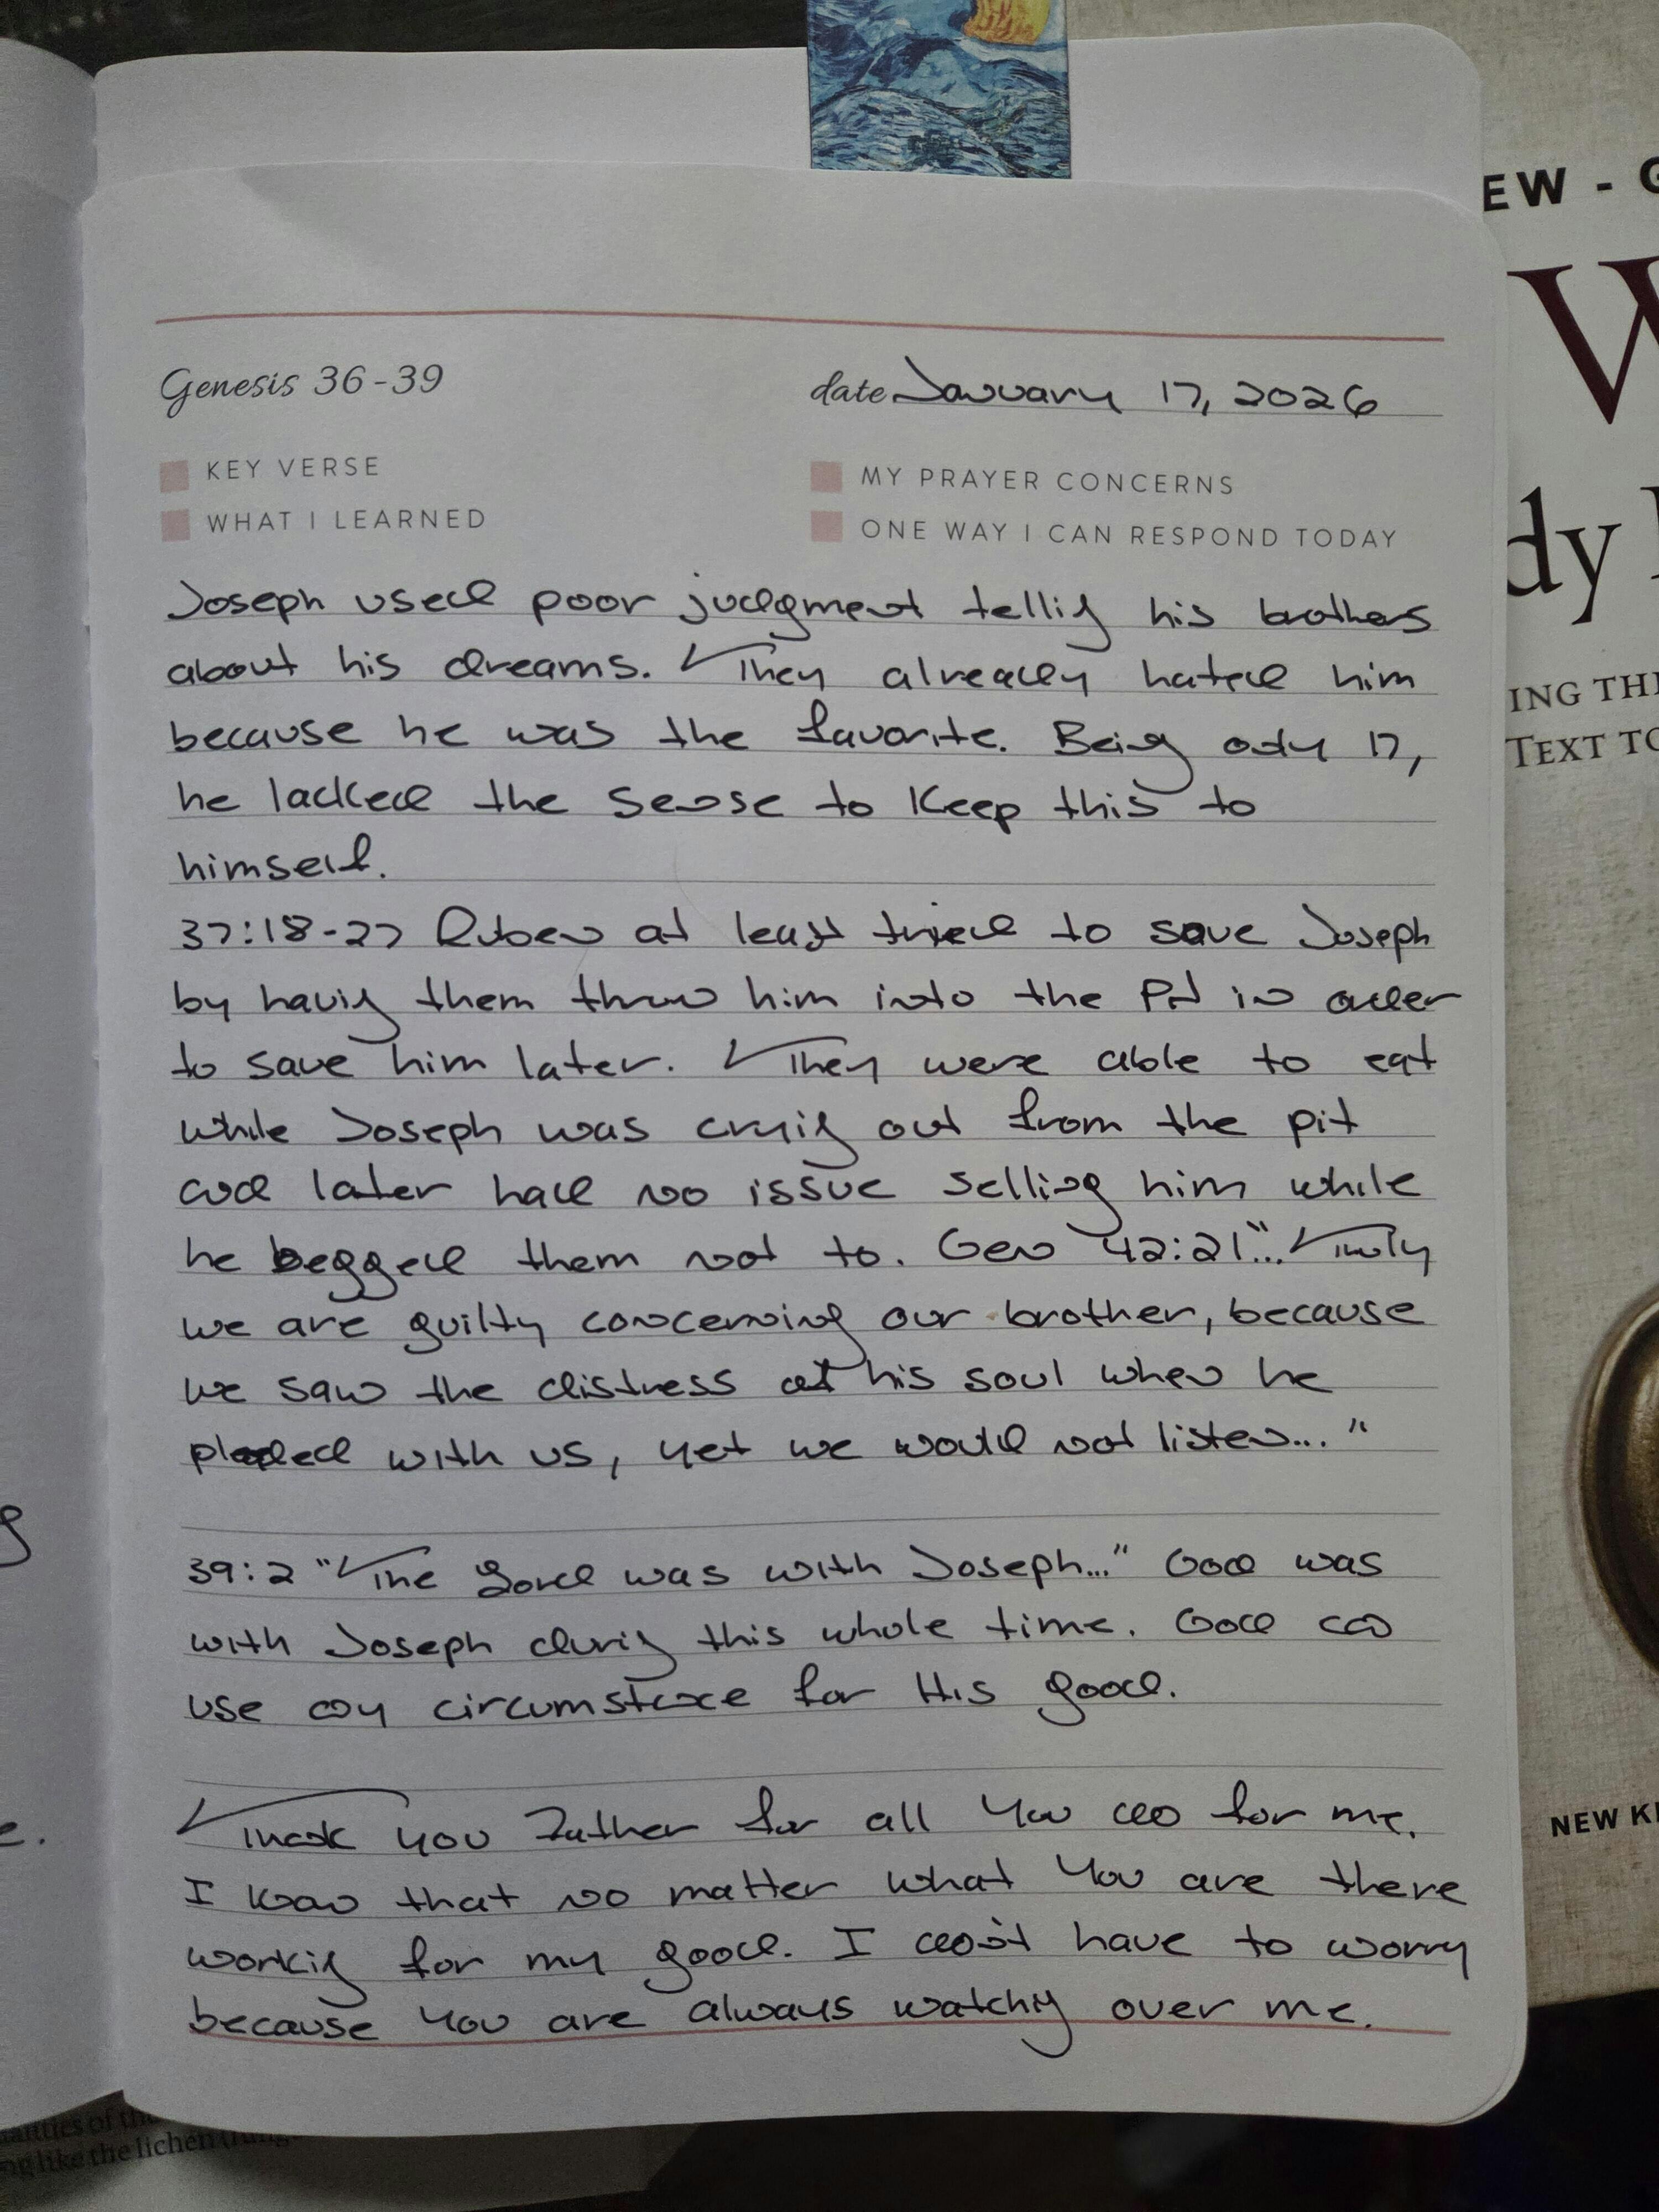 EW - G
W
dy
ING THE
TEXT TO
NEW KI
Genesis 36-39
date January 17, 2026
KEY VERSE
MY PRAYER CONCERNS
WHAT I LEARNED
ONE WAY I CAN RESPOND TODAY
Joseph used poor judgment telling his brothers
about his dreams. They already hated him
because he was the favorite. Being only 17,
he lacked the sense to keep this to
himself.
37:18-27 Ruben at least tried to save Joseph
by having them throw him into the pit in order
to save him later. They were able to eat
while Joseph was crying out from the pit
and later had no issue selling him while
he begged them not to. Gen 42:21 "... Truly
we are guilty concerning our brother, because
we saw the distress of his soul when he
pleaded with us, yet we would not listen..."
39:2 "The Lord was with Joseph..." God was
with Joseph during this whole time. God can
use any circumstance for His good.
Thank you Father for all You do for me.
I know that no matter what You are there
working for my good. I don't have to worry
because You are always watching over me.
g
e.
ng like the lichen